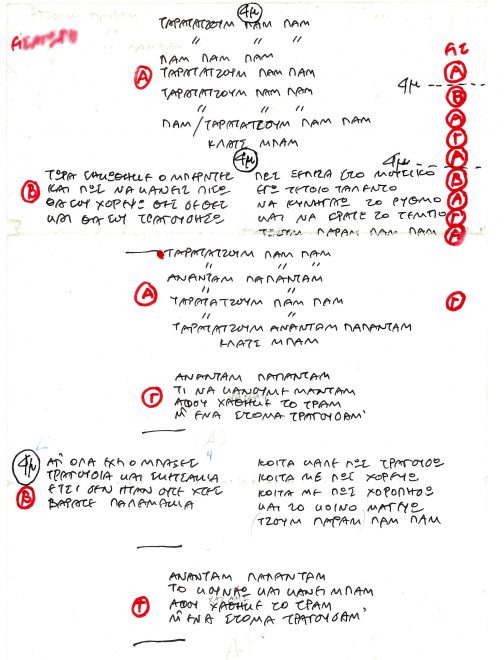 4μ
ΤΑΡΑΤΑΤΖΟΥΜ ΠΑΜ ΠΑΜ
" " "
ΠΑΜ ΠΑΜ ΠΑΜ
Α ΤΑΡΑΤΑΤΖΟΥΜ ΠΑΜ ΠΑΜ
ΤΑΡΑΤΑΤΖΟΥΜ ΠΑΜ ΠΑΜ
" " "
ΠΑΜ/ΤΑΡΑΤΑΤΖΟΥΜ ΠΑΜ ΠΑΜ
ΚΛΑΤΣ ΜΠΑΜ
4μ
Β ΤΩΡΑ Ο ΜΠΕΡΝΤΕΣ
ΚΑΙ ΠΩΣ ΝΑ ΚΑΝΕΙΣ ΠΙΣΩ
ΘΑ ΣΟΥ ΧΟΡΕΥΩ
ΚΑΙ ΘΑ ΣΟΥ ΤΡΑΓΟΥΔΗΣΩ
ΠΕΣ ΞΕΠΕΡΑ ΣΤΟ ΜΟΥΣΙΚΟ
ΕΧΩ ΤΕΤΟΙΟ ΤΑΛΕΝΤΟ
ΝΑ ΚΥΝΗΓΑΩ ΤΟ ΡΥΘΜΟ
ΚΑΙ ΝΑ ΚΡΑΤΩ ΤΟ ΤΕΜΠΟ
ΤΖΟΥΜ ΠΑΡΑΜ ΠΑΜ ΠΑΜ
Α
4μ Β
Α
Γ
4μ Α
Β
Α
Γ
Α
Γ
ΤΑΡΑΤΑΤΖΟΥΜ ΠΑΜ ΠΑΜ
" " "
Α ΑΝΑΝΤΑΜ ΠΑΠΑΝΤΑΜ
ΤΑΡΑΤΑΤΖΟΥΜ ΠΑΜ ΠΑΜ
" " "
ΤΑΡΑΤΑΤΖΟΥΜ ΑΝΑΝΤΑΜ ΠΑΠΑΝΤΑΜ
ΚΛΑΤΣ ΜΠΑΜ
ΑΝΑΝΤΑΜ ΠΑΠΑΝΤΑΜ
ΤΙ ΝΑ ΚΑΝΟΥΜΕ ΜΑΝΤΑΜ
Γ ΑΦΟΥ ΧΑΘΗΚΕ ΤΟ ΤΡΑΜ
Μ' ΕΝΑ ΣΤΟΜΑ ΤΡΑΓΟΥΔΑΜ'
4μ ΑΠ' ΟΛΑ ΕΧΕΙ Ο ΜΠΑΞΕΣ
ΤΡΑΓΟΥΔΙΑ ΚΑΙ ΣΚΕΤΣΑΚΙΑ
Β ΕΤΣΙ ΔΕΝ ΗΤΑΝ ΟΥΤΕ ΧΤΕΣ
ΒΑΡΑΤΕ ΠΑΛΑΜΑΚΙΑ
ΚΟΙΤΑ ΚΑΛΕ ΠΩΣ ΤΡΑΓΟΥΔΩ
ΚΟΙΤΑ ΜΕ ΠΩΣ ΧΟΡΕΥΩ
ΚΟΙΤΑ ΜΕ ΠΩΣ ΧΟΡΟΠΗΔΩ
ΚΑΙ ΤΟ ΚΟΙΝΟ ΜΑΓΕΥΩ
ΤΖΟΥΜ ΠΑΡΑΜ ΠΑΜ ΠΑΜ
ΑΝΑΝΤΑΜ ΠΑΠΑΝΤΑΜ
ΤΟ ΚΟΥΝΑΩ ΚΑΙ ΚΑΝΕΙ ΜΠΑΜ
Γ ΑΦΟΥ ΧΑΘΗΚΕ ΤΟ ΤΡΑΜ
Μ' ΕΝΑ ΣΤΟΜΑ ΤΡΑΓΟΥΔΑΜ'